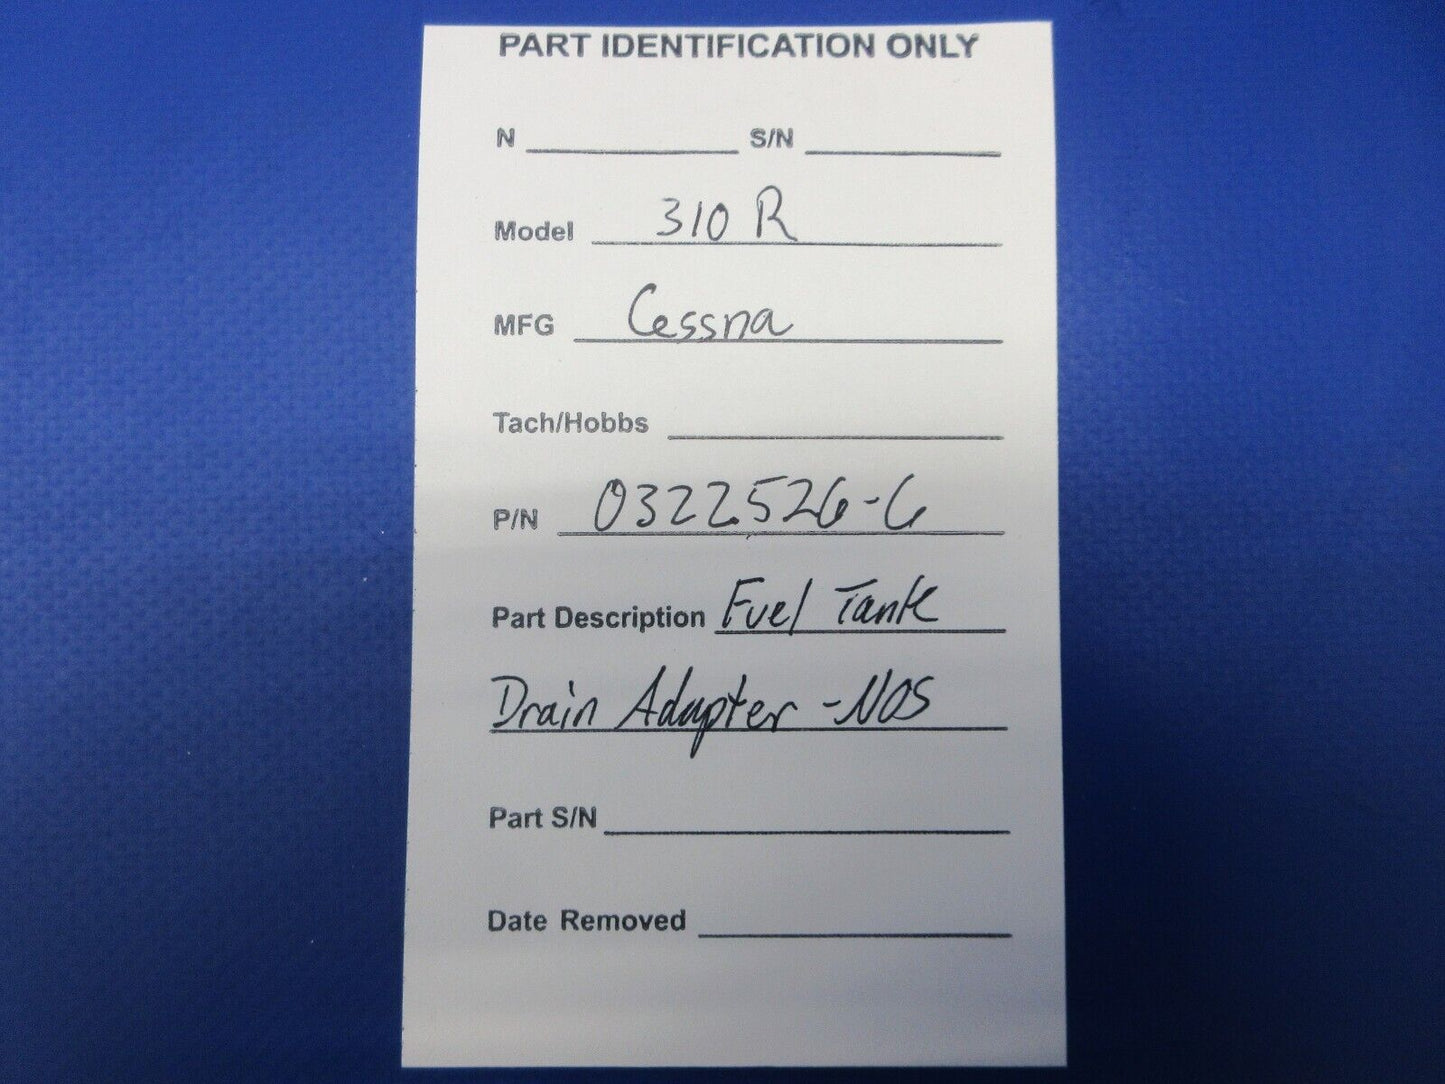 PART IDENTIFICATION ONLY
N S/N
Model 310 R
MFG Cessna
Tach/Hobbs
P/N 0322526-6
Part Description Fuel Tank
Drain Adapter -NOS
Part S/N
Date Removed